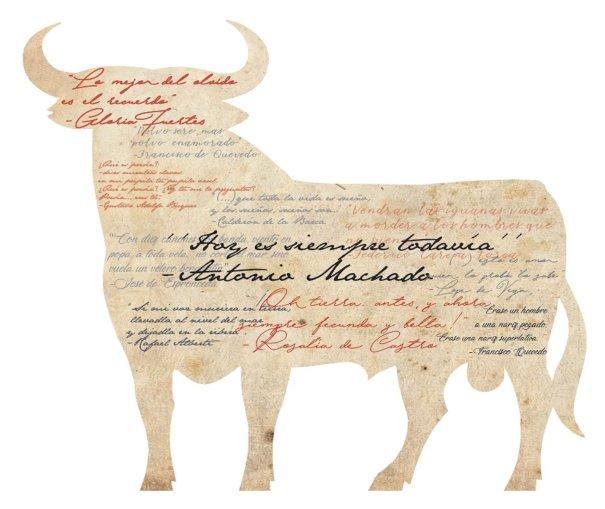 "Lo mejor del olvido
es el recuerdo"
- Gloria Fuertes
"Polvo seré, mas
polvo enamorado"
- Francisco de Quevedo
¿Qué es poesía?
- dices mientras clavas
en mi pupila tu pupila azul.
¿Qué es poesía? ¿Y tú me lo preguntas?
Poesía... eres tú.
- Gustavo Adolfo Bécquer
(...)que toda la vida es sueño,
y los sueños, sueños son.
- Calderón de la Barca
"Vendrán las iguanas vivas
a morder a los hombres que
Federico García Lorca
"Con diez cañones por banda, viento en
popa, a toda vela, no corta el mar sino
vuela un velero bergantín"
- José de Espronceda
"Hoy es siempre todavía"
- Antonio Machado
esto es amor,
quien lo probó lo sabe
- Lope de Vega
"Si mi voz muriera en tierra,
llevadla al nivel del mar
y dejadla en la ribera"
- Rafael Alberti
¡Oh tierra, antes y ahora,
siempre fecunda y bella!"
- Rosalía de Castro
"Érase un hombre
a una nariz pegado,
Érase una nariz superlativa
- Francisco Quevedo